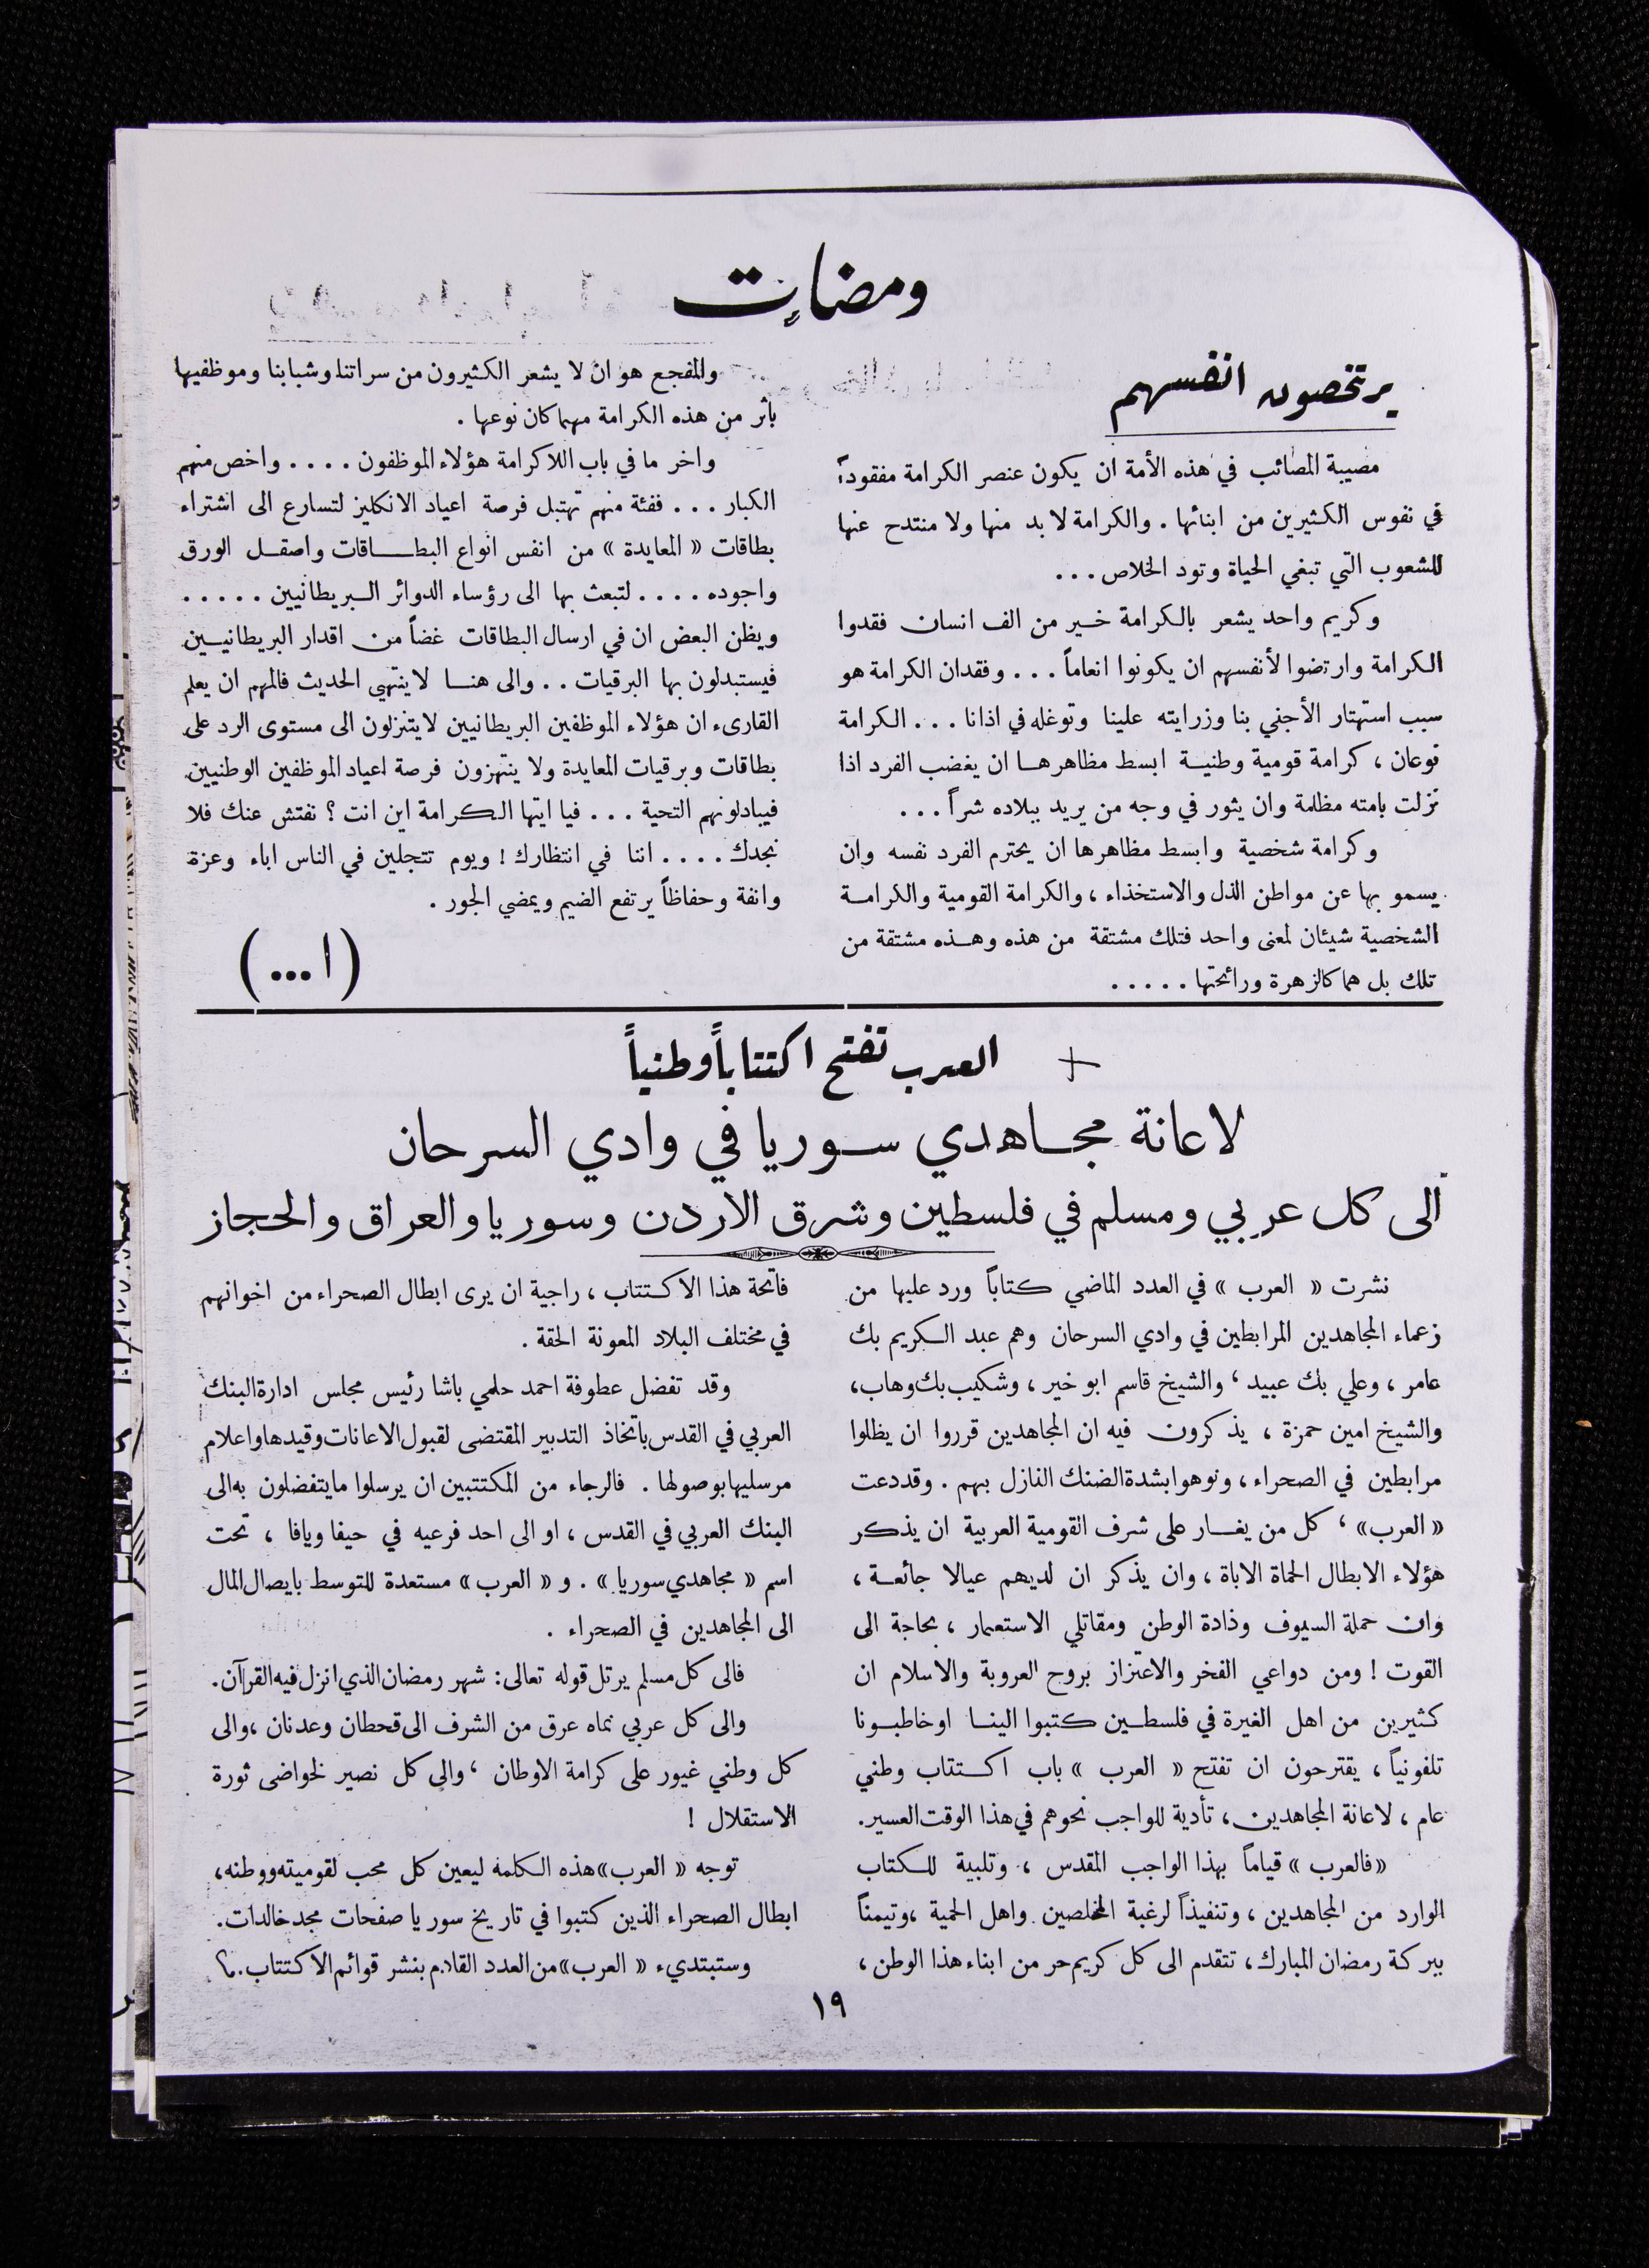 ومضات
يرتخصون انفسهم
مصيبة المصائب في هذه الأمة ان يكون عنصر الكرامة مفقوداً
في نفوس الكثيرين من ابنائها . والكرامة لا بد منها ولا منتدح عنها
للشعوب التي تبغي الحياة وتود الخلاص . . .
وكريم واحد يشعر بالكرامة خير من الف انسان فقدوا
الكرامة وارتضوا لأنفسهم ان يكونوا انعاماً . . . وفقدان الكرامة هو
سبب استهتار الأجنبي بنا وزرايته علينا وتوغله في اذانا . . . الكرامة
نوعان ، كرامة قومية وطنية ابسط مظاهرها ان يغضب الفرد اذا
نزلت بامته مظلمة وان يثور في وجه من يريد ببلاده شراً . . .
وكرامة شخصية وابسط مظاهرها ان يحترم الفرد نفسه وان
يسمو بها عن مواطن الذل والاستخذاء ، والكرامة القومية والكرامة
الشخصية شيئان لمعنى واحد فتلك مشتقة من هذه وهذه مشتقة من
تلك بل هما كالزهرة ورائحتها . . . . .
والمفجع هو ان لا يشعر الكثيرون من سراتنا وشبابنا وموظفيها
باثر من هذه الكرامة مهما كان نوعها .
واخر ما في باب اللاكرامة هؤلاء الموظفون . . . . واخص منهم
الكبار . . . ففئة منهم تهتبل فرصة اعياد الانكليز لتسارع الى اشتراء
بطاقات « المعايدة » من انفس انواع البطاقات واصقل الورق
واجوده . . . . لتبعث بها الى رؤساء الدوائر البريطانيين . . . . .
ويظن البعض ان في ارسال البطاقات غضاً من اقدار البريطانيين
فيستبدلون بها البرقيات . . والى هنا لا ينتهي الحديث فالمهم ان يعلم
القارىء ان هؤلاء الموظفين البريطانيين لا يتنزلون الى مستوى الرد على
بطاقات وبرقيات المعايدة ولا ينتهزون فرصة اعياد الموظفين الوطنيين
فيبادلونهم التحية . . . فيا ايتها الكرامة اين انت ؟ نفتش عنك فلا
نجدك . . . . اننا في انتظارك ! ويوم تتجلين في الناس اباء وعزة
وانفة وحفاظاً يرتفع الضيم ويمضي الجور .
( ا ... )
العرب تفتح اكتتاباً وطنياً
لاعانة مجاهدي سوريا في وادي السرحان
الى كل عربي ومسلم في فلسطين وشرق الاردن وسوريا والعراق والحجاز
نشرت « العرب » في العدد الماضي كتاباً ورد عليها من
زعماء المجاهدين المرابطين في وادي السرحان وهم عبد الكريم بك
عامر ، وعلي بك عبيد ، والشيخ قاسم ابو خير ، وشكيب بك وهاب،
والشيخ امين حمزة ، يذكرون فيه ان المجاهدين قرروا ان يظلوا
مرابطين في الصحراء ، ونوهوا بشدة الضنك النازل بهم . وقد دعت
« العرب» ، كل من يغار على شرف القومية العربية ان يذكر
هؤلاء الابطال الحماة الاباة ، وان يذكر ان لديهم عيالا جائعة ،
وان حملة السيوف وذادة الوطن ومقاتلي الاستعمار ، بحاجة الى
القوت ! ومن دواعي الفخر والاعتزاز بروح العروبة والاسلام ان
كثيرين من اهل الغيرة في فلسطين كتبوا الينا اوخاطبونا
تلفونياً ، يقترحون ان تفتح « العرب » باب اكتتاب وطني
عام ، لاعانة المجاهدين ، تأدية للواجب نحوهم في هذا الوقت العسير.
«فالعرب » قياماً بهذا الواجب المقدس ، وتلبية للكتاب
الوارد من المجاهدين ، وتنفيذاً لرغبة المخلصين واهل الحمية ،وتيمناً
ببركة رمضان المبارك ، تتقدم الى كل كريم حر من ابناء هذا الوطن ،
فاتحة هذا الاكتتاب ، راجية ان يرى ابطال الصحراء من اخوانهم
في مختلف البلاد المعونة الحقة .
وقد تفضل عطوفة احمد حلمي باشا رئيس مجلس ادارة البنك
العربي في القدس باتخاذ التدبير المقتضى لقبول الاعانات وقيدها واعلام
مرسليها بوصولها . فالرجاء من المكتتبين ان يرسلوا ما يتفضلون به الى
البنك العربي في القدس ، او الى احد فرعيه في حيفا ويافا ، تحت
اسم « مجاهدي سوريا » . و « العرب» مستعدة للتوسط بايصال المال
الى المجاهدين في الصحراء .
فالى كل مسلم يرتل قوله تعالى: شهر رمضان الذي انزل فيه القرآن.
والى كل عربي نماه عرق من الشرف الى قحطان وعدنان ،والى
كل وطني غيور على كرامة الاوطان ، والى كل نصير لخواضى ثورة
الاستقلال !
توجه « العرب» هذه الكلمة ليعين كل محب لقوميته ووطنه،
ابطال الصحراء الذين كتبوا في تاريخ سوريا صفحات مجد خالدات.
وستبتديء « العرب» من العدد القادم بنشر قوائم الاكتتاب.
١٩